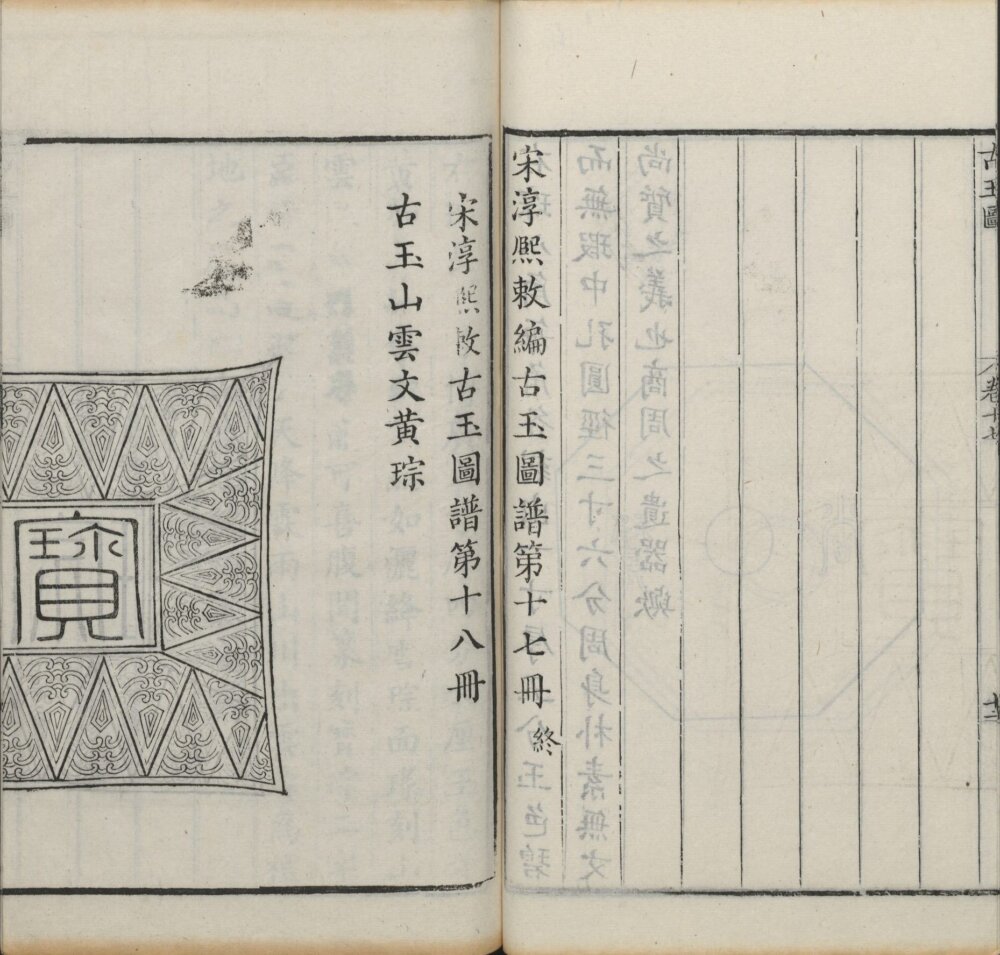 古玉圖
卷十七
宋淳熙敕編古玉圖譜第十七冊 終
宋淳熙敕古玉圖譜第十八冊
古玉山雲文黄琮
寳